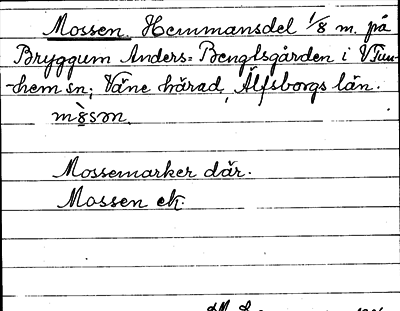 Mossen. Hemmansdel 1/8 m. på
Bryggum Anders-Bengtsgården i V Tun-
hem sn; Väne härad, Älfsborgs län.
mòsən.
Mossemarker där.
Mossen ek.